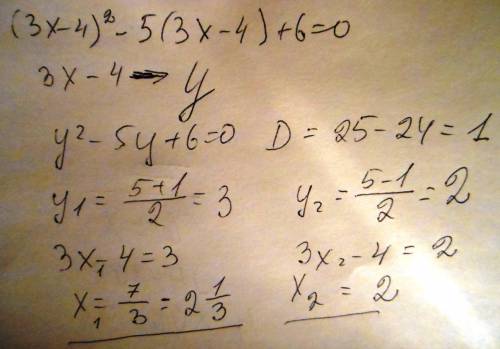 (3x-4)² - 5(3x-4) + 6 = 0
3x - 4 → y
y² - 5y + 6 = 0 D = 25 - 24 = 1
y1 = (5+1)/2 = 3 y2 = (5-1)/2 = 2
3x1 - 4 = 3 3x2 - 4 = 2
x1 = 7/3 = 2 1/3 x2 = 2